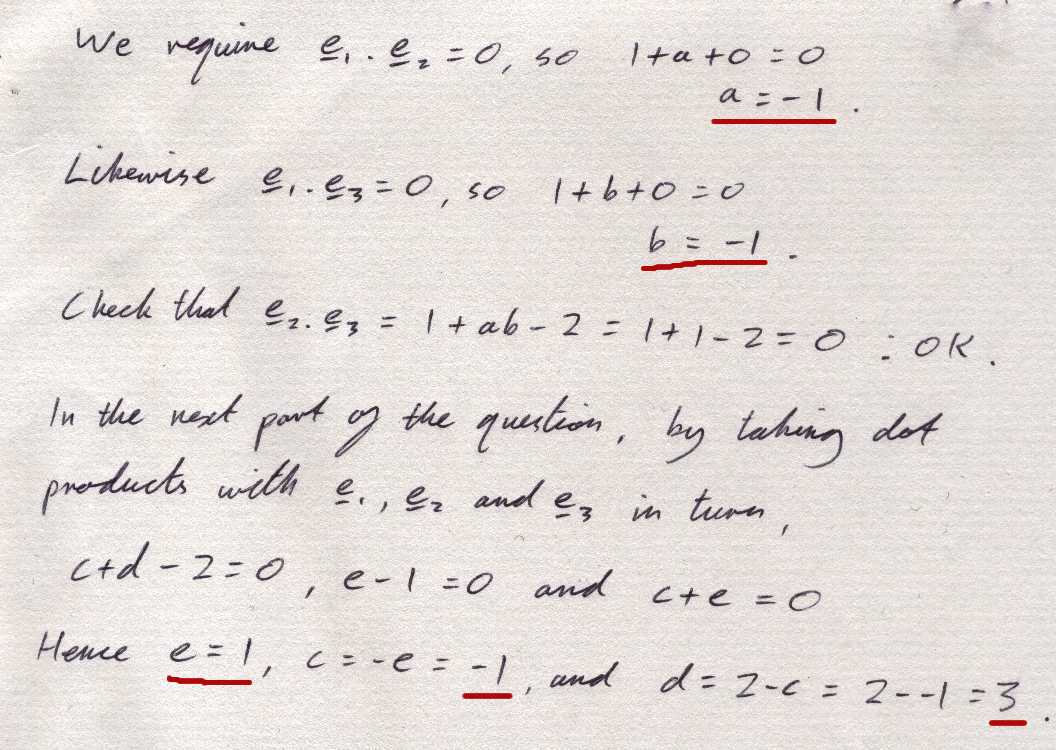 We require e₁ . e₂ = 0, so 1+a+0 = 0
a = -1 .
Likewise e₁ . e₃ = 0, so 1+b+0 = 0
b = -1 .
Check that e₂ . e₃ = 1 + ab - 2 = 1+1-2 = 0 : OK.
In the next part of the question, by taking dot
products with e₁, e₂ and e₃ in turn,
c+d-2=0, e-1=0 and c+e=0
Hence e=1, c=-e=-1, and d=2-c=2--1=3.